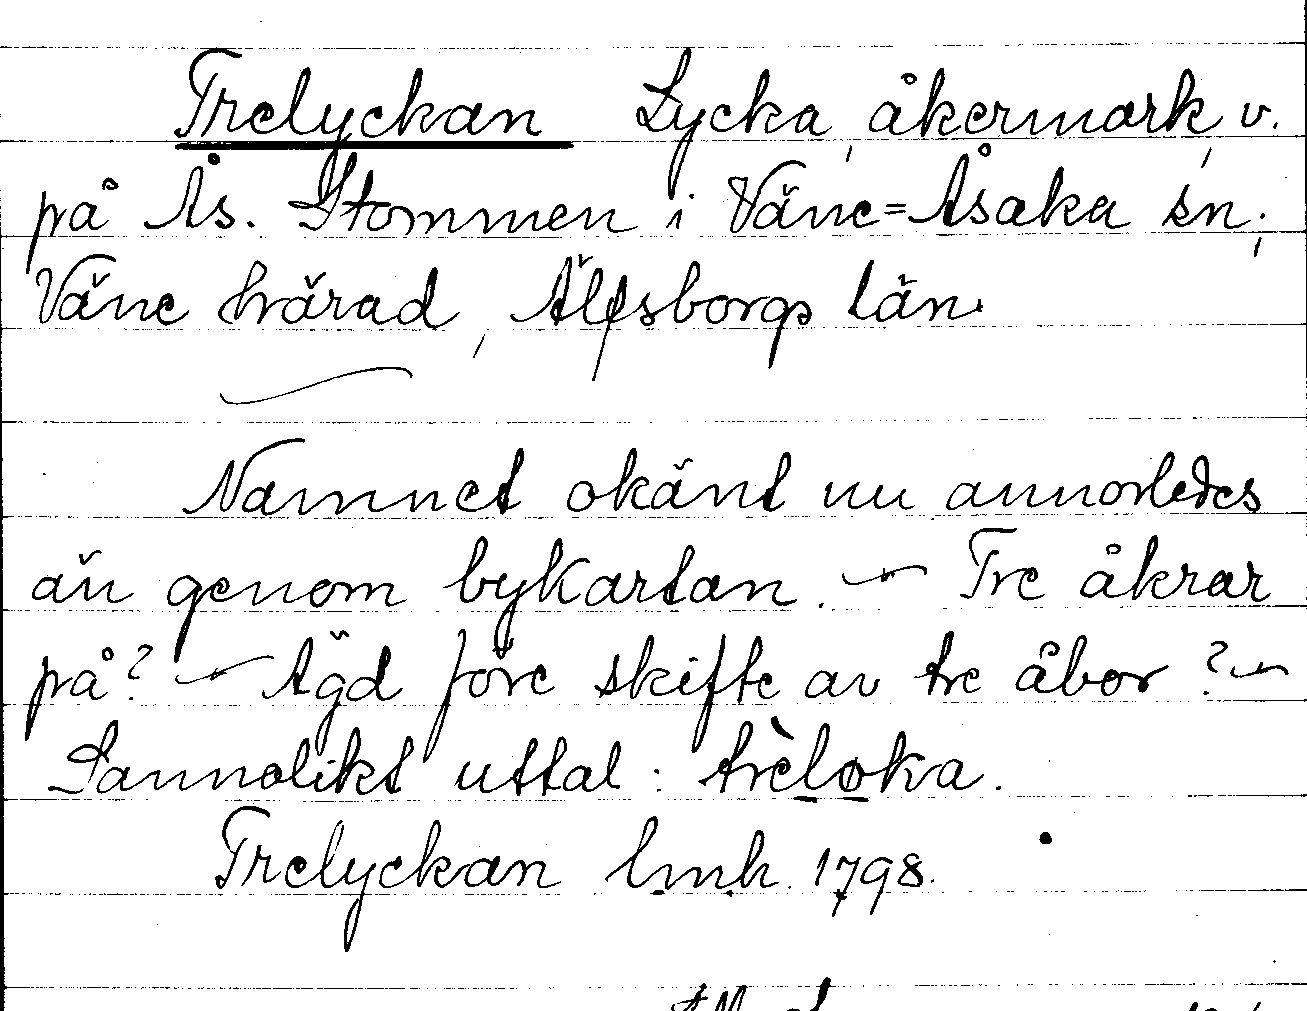 Trelyckan Lycka, åkermark, v.
på Ås. Stommen i Väne=Åsaka sn,
Väne härad, Älfsborgs län.
Namnet okänt nu annorledes
än genom bykartan. - Tre åkrar
på? - Ägd före skifte av tre åbor? -
Sannolikt uttal: trèloka.
Trelyckan lmh. 1798.